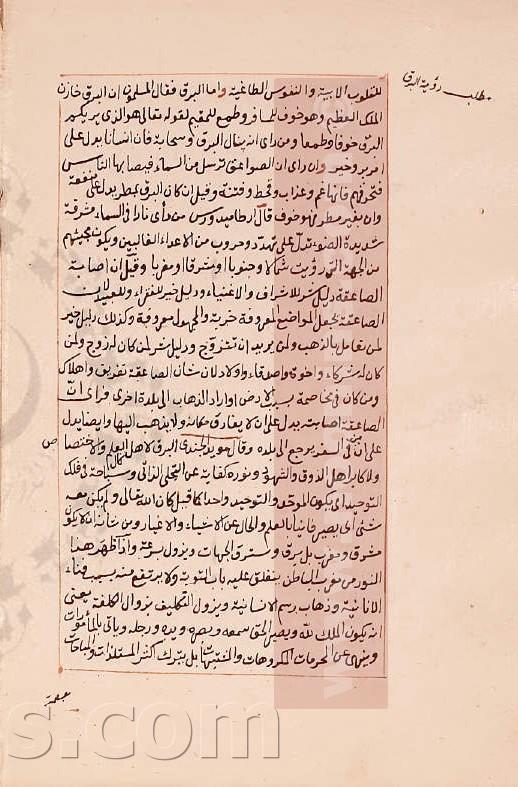 مطلب رؤية البرق
للقلوب الابية والنفوس الطاغية واما البرق فقال المسلمون ان البرق خازن
الملك العظيم وهو خوف للمسافر وطمع للمقيم لقوله تعالى هو الذى يريكم
البرق خوفا وطمعا ومن راى انه ينال البرق وسحابة فان انسانا يدل على
امر بر وخير وان راى ان الصواعق ترسل من السماء فيصاب بها الناس
فتحرقهم فانها غم وعذاب وقحط وفتنة وقيل ان كان البرق بمطر يدل على منفعة
وان بغير مطر فهو خوف قال ارطاميدورس من رأى نارا فى السماء مشرقة
شديدة الضوء تدل على تهدد وحروب من الاعداء الغالبين ويكون مجيئهم
من الجهة التى رؤيت شمالا وجنوبا او مشرقا او مغربا وقيل ان اصابة
الصاعقة دليل شر للاشراف والاغنياء ودليل خير للفقراء وللعبيد لان
الصاعقة تجعل المواضع المعروفة خربة والمجهول معروفة وكذلك دليل خير
لمن يعامل بالذهب ولمن يريد ان يتزوج ودليل شر لمن كان له زوج ولمن
كان له شركاء واخوة واصدقاء واولاد لان شان الصاعقة تفريق واهلاك
ومن كان فى مخاصمة بسبب الارض او اراد الذهاب الى بلدة اخرى فراى ان
الصاعقة اصابته يدل على ان لا يفارق مكانه ولا يذهب اليها وايضا يدل
على ان من فى السفر يرجع الى بلده وقال مويد الجندى البرق لاهل العلم والاختصا
ص
ولاكابر اهل الذوق والشهود ونوره كناية عن التجلى الذاتى فى فلك
التوحيد اى يكون الموحد والتوحيد واحدا كما قيل كان الله تعالى ولم يكن معه
شئ اى يصير فانيا بالعلم والحال عن الاشياء والاغيار ومن شانه ان لا يكون
مشرق ومغرب بل يبرق وتشرق الجهات ويزول بسرعة واذا ظهر هذا
النور من مغرب الباطن ينغلق عليه باب التوبة ولا ينتفع منه بسبب فناء
الانانية وذهاب رسم الانسانية ويزول التكليف بزوال الكلفة يعنى
انه يكون الملك لله ويصير الحق سمعه وبصره ويده ورجله وياتى بالمأمورات
وينهى عن المحرمات المكروهات والمشتبهات بل يترك اكثر المستلذات والمباحات
s.com